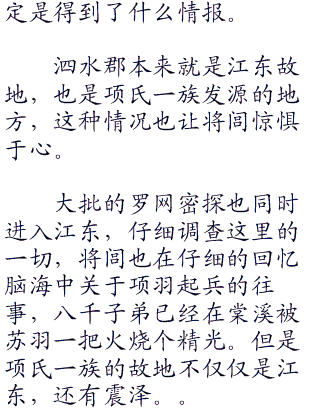 定是得到了什么情报。
泗水郡本来就是江东故
地，也是项氏一族发源的地
方，这种情况也让将闾惊惧
于心。
大批的罗网密探也同时
进入江东，仔细调查这里的
一切，将闾也在仔细的回忆
脑海中关于项羽起兵的往
事，八千子弟已经在棠溪被
苏羽一把火烧个精光。但是
项氏一族的故地不仅仅是江
东，还有震泽。。